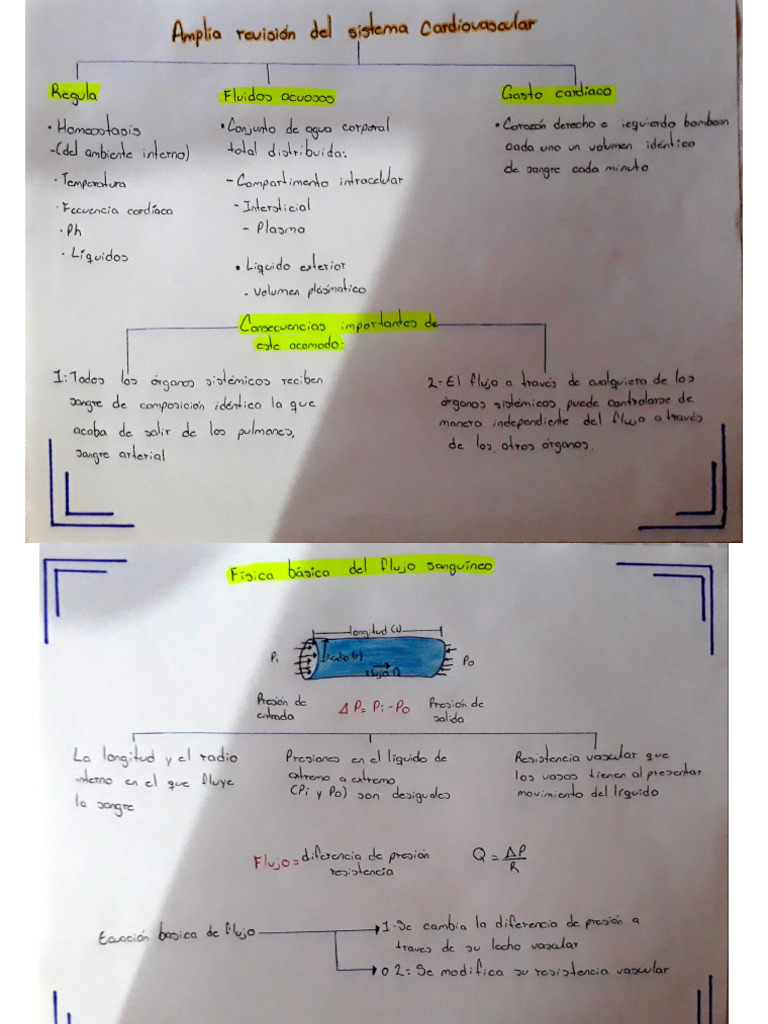 Amplia revisión del sistema Cardiovascular
Regula
• Homeostasis
-(del ambiente interno)
• Temperatura
• Frecuencia cardíaca
• Ph
• Líquidos
Fluidos acuosos
• Conjunto de agua corporal
total distribuida:
- Compartimento intracelular
- Intersticial
- Plasma
• Liquido exterior
• Volumen plásmatico
Gasto cardíaco
• Corazón derecho e izquierdo bombean
cada uno un volumen idéntico
de sangre cada minuto
Consecuencias importantes de
este acomodo:
1: Todos los órganos sistémicos reciben
sangre de composición idéntica la que
acaba de salir de los pulmones,
sangre arterial
2- El flujo a través de cualquiera de los
órganos sistémicos puede controlarse de
manera independiente del flujo a través
de los otros órganos.
Física básica del flujo sanguíneo
longitud (L)
Pi
radio (r)
Flujo Q
Po
Presión de
entrada
Δ P= Pi -Po
Presión de
salida
La longitud y el radio
interno en el que fluye
la sangre
Presiones en el líquido de
extremo a extremo
(Pi y Po) son desiguales
Resistencia vascular que
los vasos tienen al presentar
movimiento del líquido
Flujo= diferencia de presión
resistencia
Q = ΔP
R
Ecuación basica de flujo
1-Se cambia la diferencia de presión a
través de su lecho vascular
o 2: Se modifica su resistencia vascular